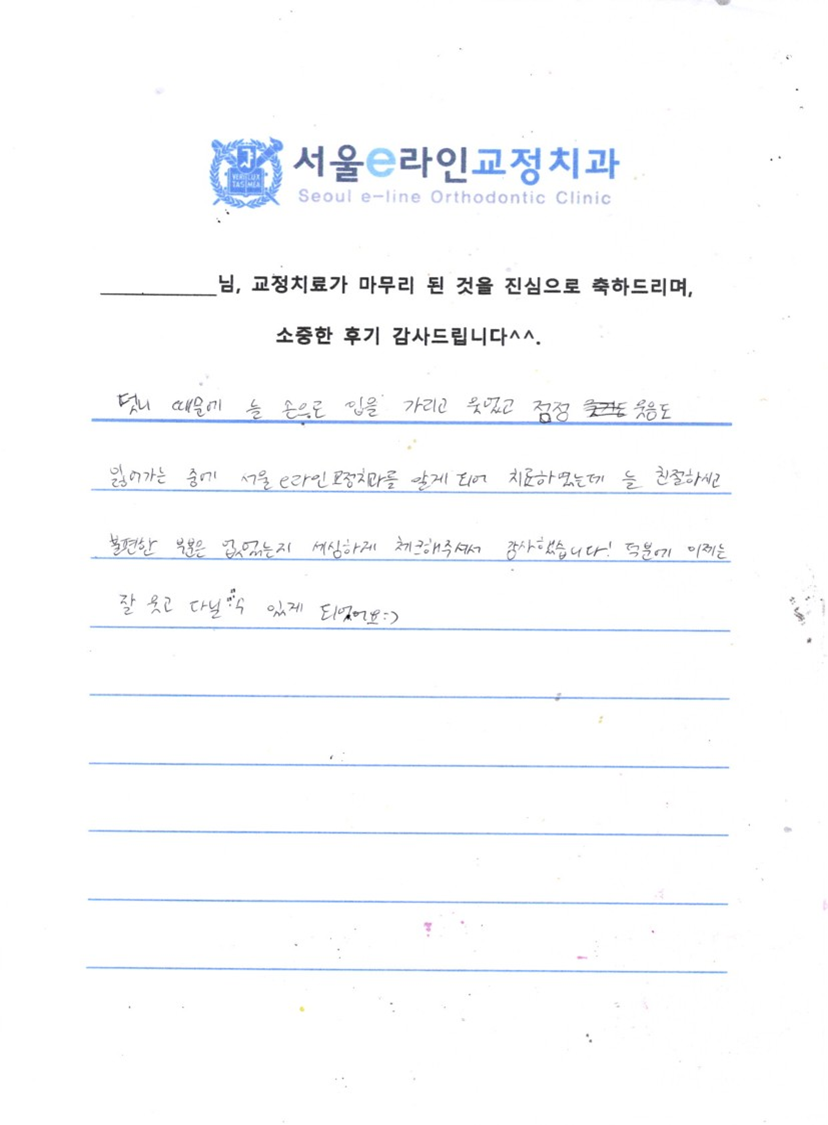 VERI LUX TAS MEA
서울e라인교정치과
Seoul e-line Orthodontic Clinic
__________님, 교정치료가 마무리 된 것을 진심으로 축하드리며,
소중한 후기 감사드립니다^^.
덧니 때문에 늘 손으로 입을 가리고 웃었고 점점 웃음도
잃어가는 중에 서울e라인교정치과를 알게 되어 치료하였는데 늘 친절하시고
불편한 부분은 없었는지 세심하게 체크해주셔서 감사했습니다! 덕분에 이제는
잘 웃고 다닐 수 있게 되었어요:)